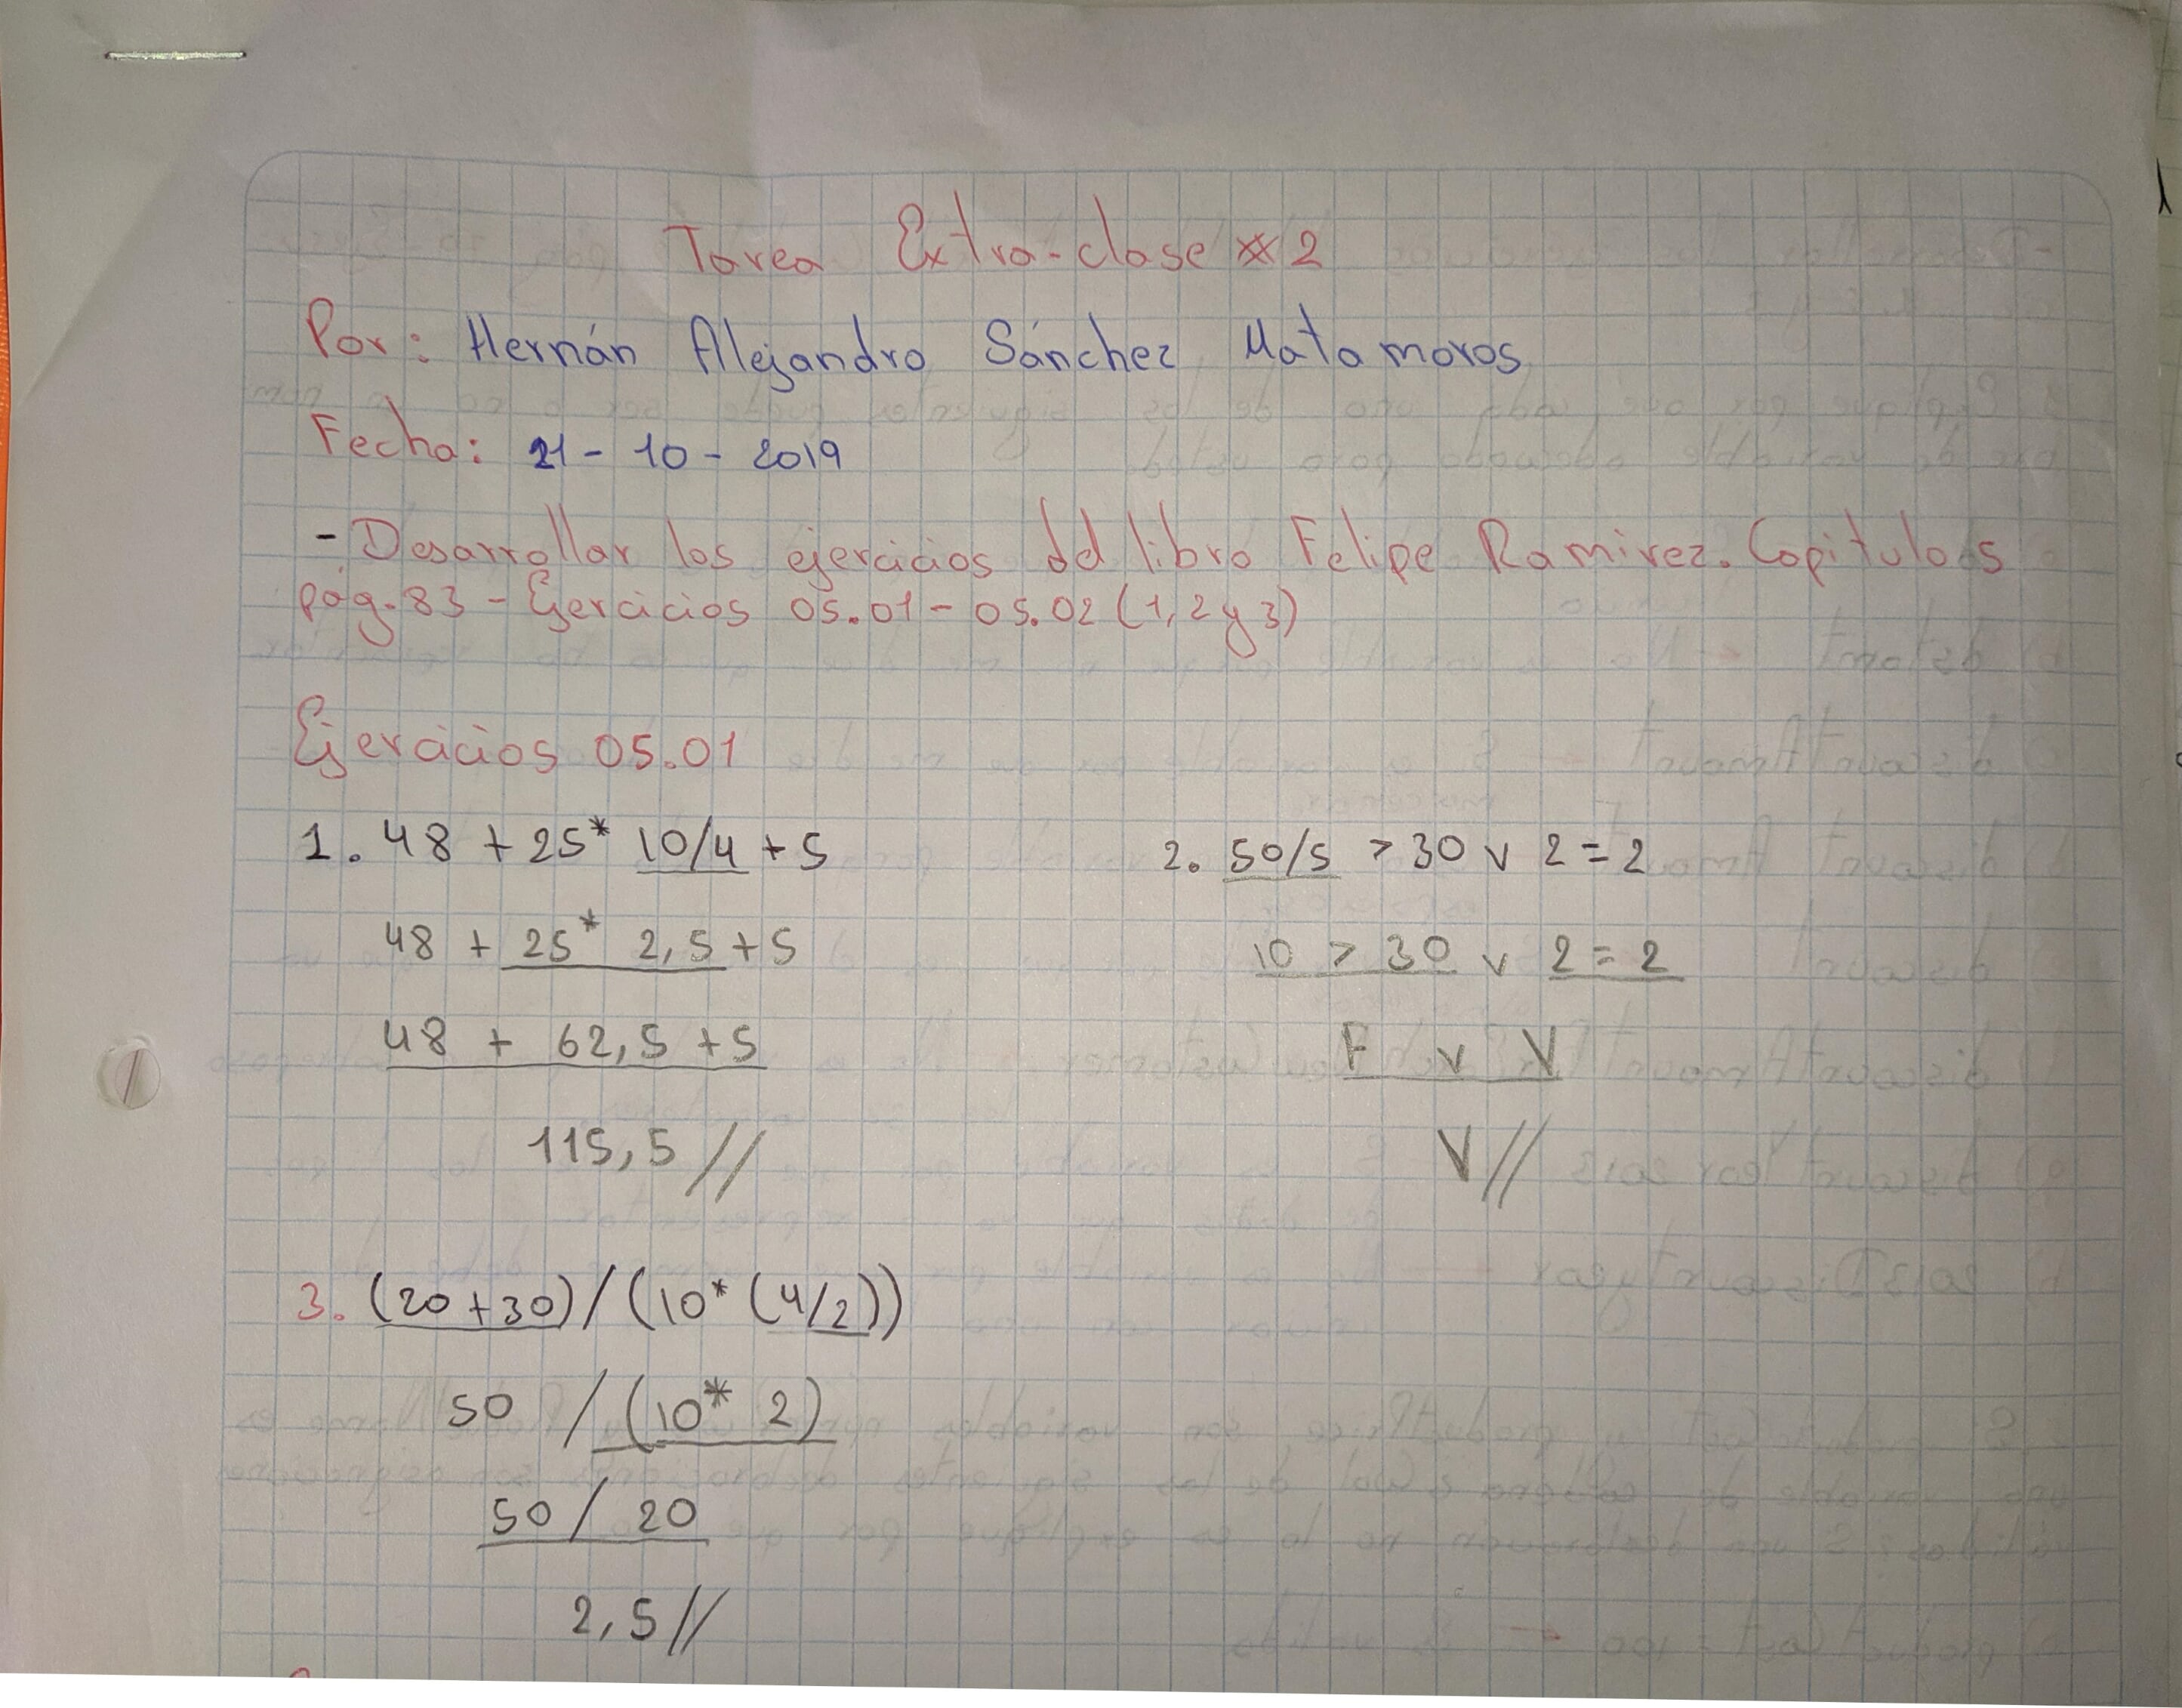 Tarea Extra-clase #2
Por: Hernán Alejandro Sánchez Matamoros
Fecha: 21-10-2019
- Desarrollar los ejercicios del libro Felipe Ramirez. Capitulo 5
pág. 83 - Ejercicios 05.01 - 05.02 (1, 2 y 3)
Ejercicios 05.01
1. 48 + 25* 10/4 + 5
48 + 25* 2,5 + 5
48 + 62,5 + 5
115,5 //
2. 50/5 > 30 v 2 = 2
10 > 30 v 2 = 2
F v V
V //
3. (20+30)/(10* (4/2))
50 / (10* 2)
50 / 20
2,5 //